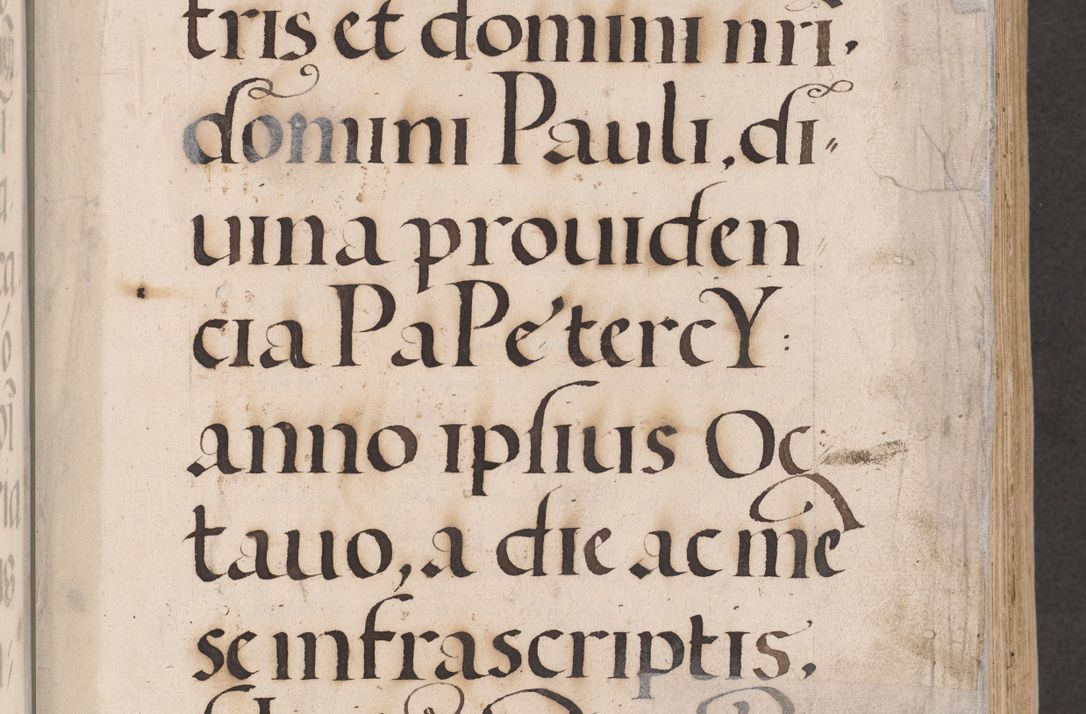 tris et domini nrĩ.
domini Pauli, di⸗
uina prouiden⸗
cia PaPe tercY:
anno ipſius Oc
tauo, a die ac mẽ
se infrascriptis,